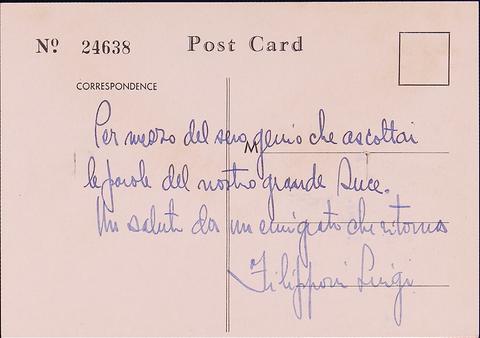 Nº 24638 Post Card
CORRESPONDENCE
M
Per mezzo del suo genio che ascoltai
le parole del nostro grande Duce.
Un saluto da un emigrato che ritorna
Filipponi Luigi